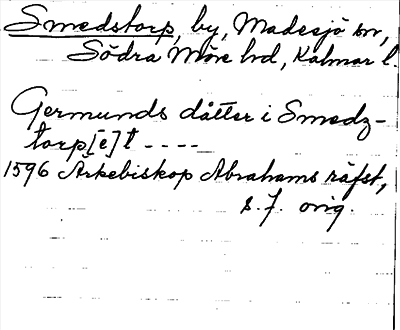 Smedstorp, by, Madesjö sn,
Södra Möre hd, Kalmar l.
Germunds dåtter i Smedz-
torp[e]t ----
1596 Ärkebiskop Abrahams räfst,
s. 7. orig.